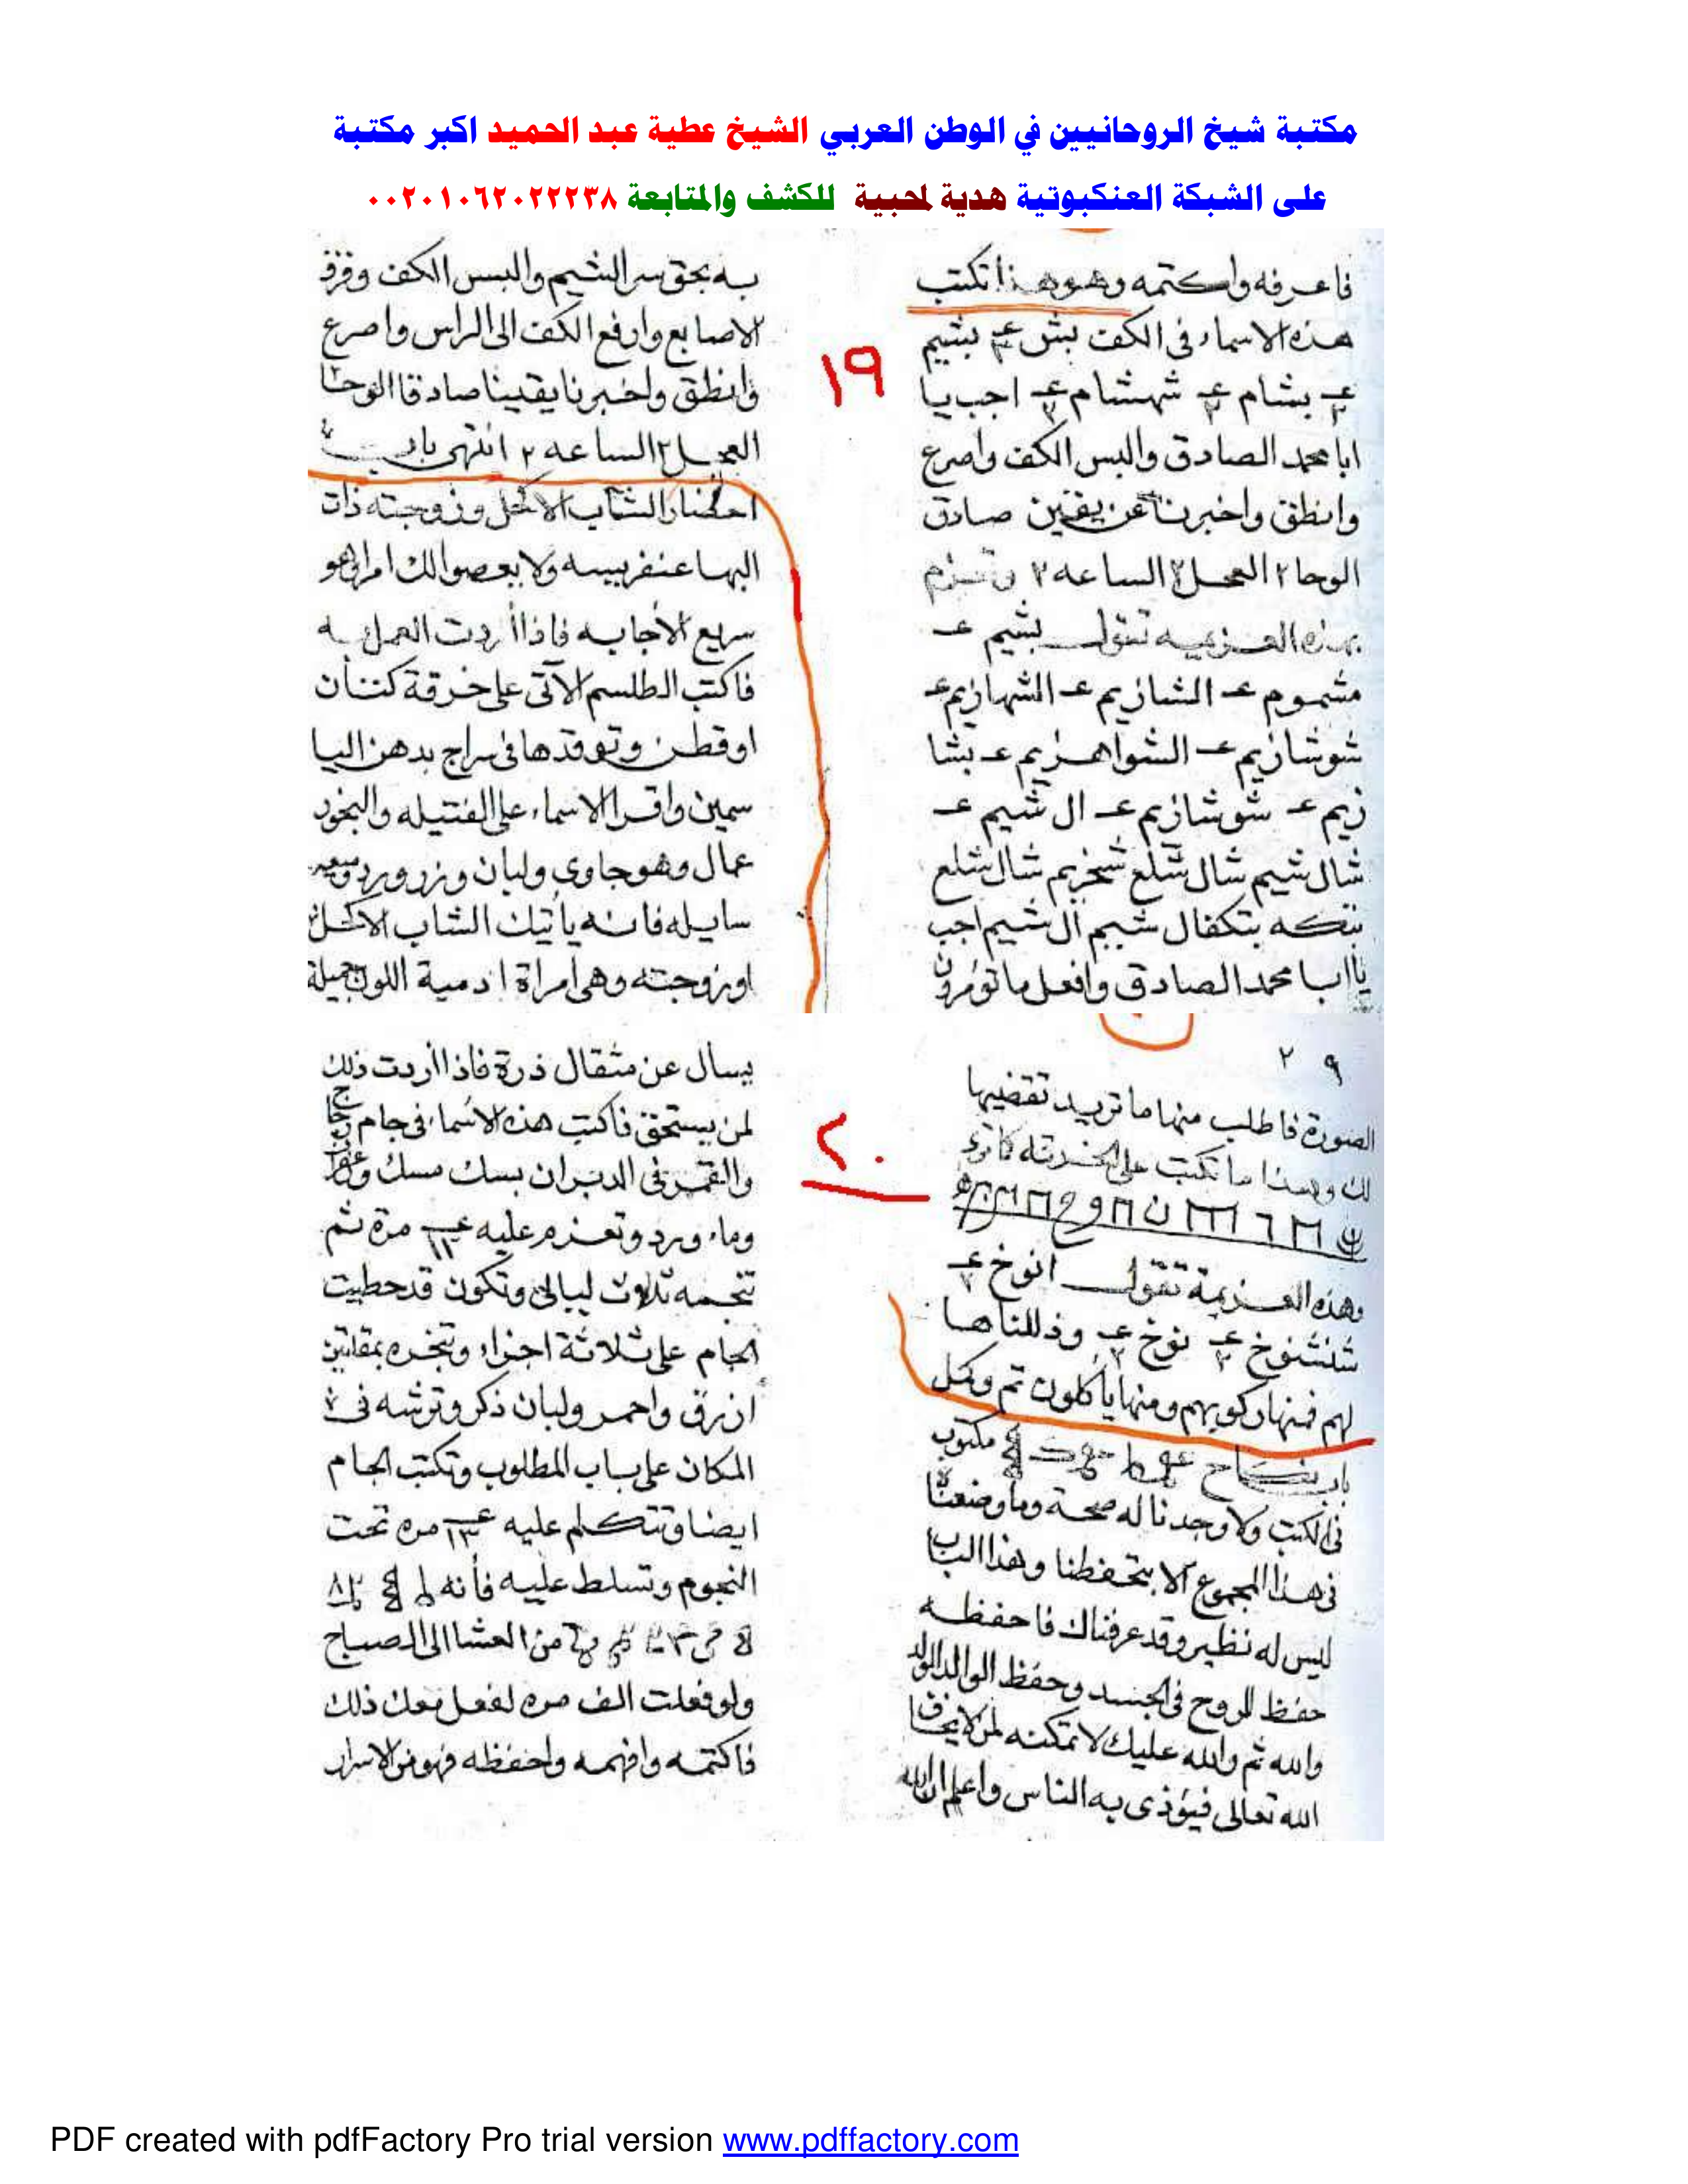 مكتبة شيخ الروحانيين في الوطن العربي الشيخ عطية عبد الحميد اكبر مكتبة
على الشبكة العنكبوتية هدية لمحبية للكشف والمتابعة ٠٠٢٠١٠٦٢٠٢٢٢٣٨
فاعرفه واكتمه وهو هذا تكتب
هذه الاسماء في الكف بش ع٣ بشيم
ع٢ بشام ع٢ شهشام ع٢ اجب يا
ابا محمد الصادق والبس الكف واصرع
وانطق واخبرنا عن يقين صادق
الوحا ٢ العجل ٢ الساعه ٢ وتعزم
بهذه العزيمه تقول بشيم عـ
مشموم عـ الشازيم عـ الشهازيم عـ
شوشازيم عـ الشواهزيم عـ بشا
زيم عـ شوشازيم عـ ال شيم عـ
شال شيم شال شلع شخزيم شال شلع
بتكه بتكفال شيم ال شيم اجب
يا ابا محمد الصادق وافعل ما تومرون
١٩
به بحق سر الشيم والبس الكف وفرق
الاصابع وارفع الكف الى الراس واصرع
وانطق واخبرنا يقينا صادقا الوحا
العجل ٢ الساعه ٢ انتهى باب
احضار الشاب الاكحل وزوجته ذات
البها عنفريسه ولا يعصوا لك امرا وهو
سريع الاجابه فاذا اردت العمل به
فاكتب الطلسم الآتى على خرقة كتان
او قطن وتوقدها في سراج بدهن اليا
سمين واقرا الاسماء على الفتيله والبخور
عمال وهو جاوي ولبان وزر ورد
سايله فانه يأتيك الشاب الاكحل
او زوجته وهى امراة ادمية اللون جميلة
٢٩
الصورة فاطلب منها ما تريد تقضيها
لك وهذا ما تكتب على
وهذه العزيمة تقول انوخ ع٢
شنشنوخ ع٢ نوخ ع٢ وذللناها
لهم فمنها ركوبهم ومنها يأكلون تم وكمل
باب مكتوب
في الكتب ولا وجدنا له صحة وما وضعناه
في هذا المجموع الا بتحفظنا وهذا الباب
ليس له نظير وقد عرفناك فاحفظه
حفظ الروح في الجسد وحفظ الوالد الولد
والله ثم والله عليك لا تمكنه لمن لا يخاف
الله تعالى فيؤذى به الناس واعلم ان الله
٢٠
يسأل عن مثقال ذرة فاذا اردت ذلك
لمن يستحق فاكتب هذه الاسماء في جام زجاج
والقمر في الدبران بسك مسك وزعفران
وماء ورد وتعزم عليه مرة ثم
تنجمه ثلاث ليالى وتكون قد حطيت
الجام على ثلاثة اجزاء وتبخره بمقل
ازرق واحمر ولبان ذكر وترشه في
المكان على باب المطلوب وتكتب الجام
ايضا وتتكلم عليه مره تحت
النجوم وتسلط عليه فأنه
من العشا الى الصباح
ولو فعلت الف مره لفعل معك ذلك
فاكتمه وافهمه واحفظه فهو من الاسرار
PDF created with pdfFactory Pro trial version www.pdffactory.com